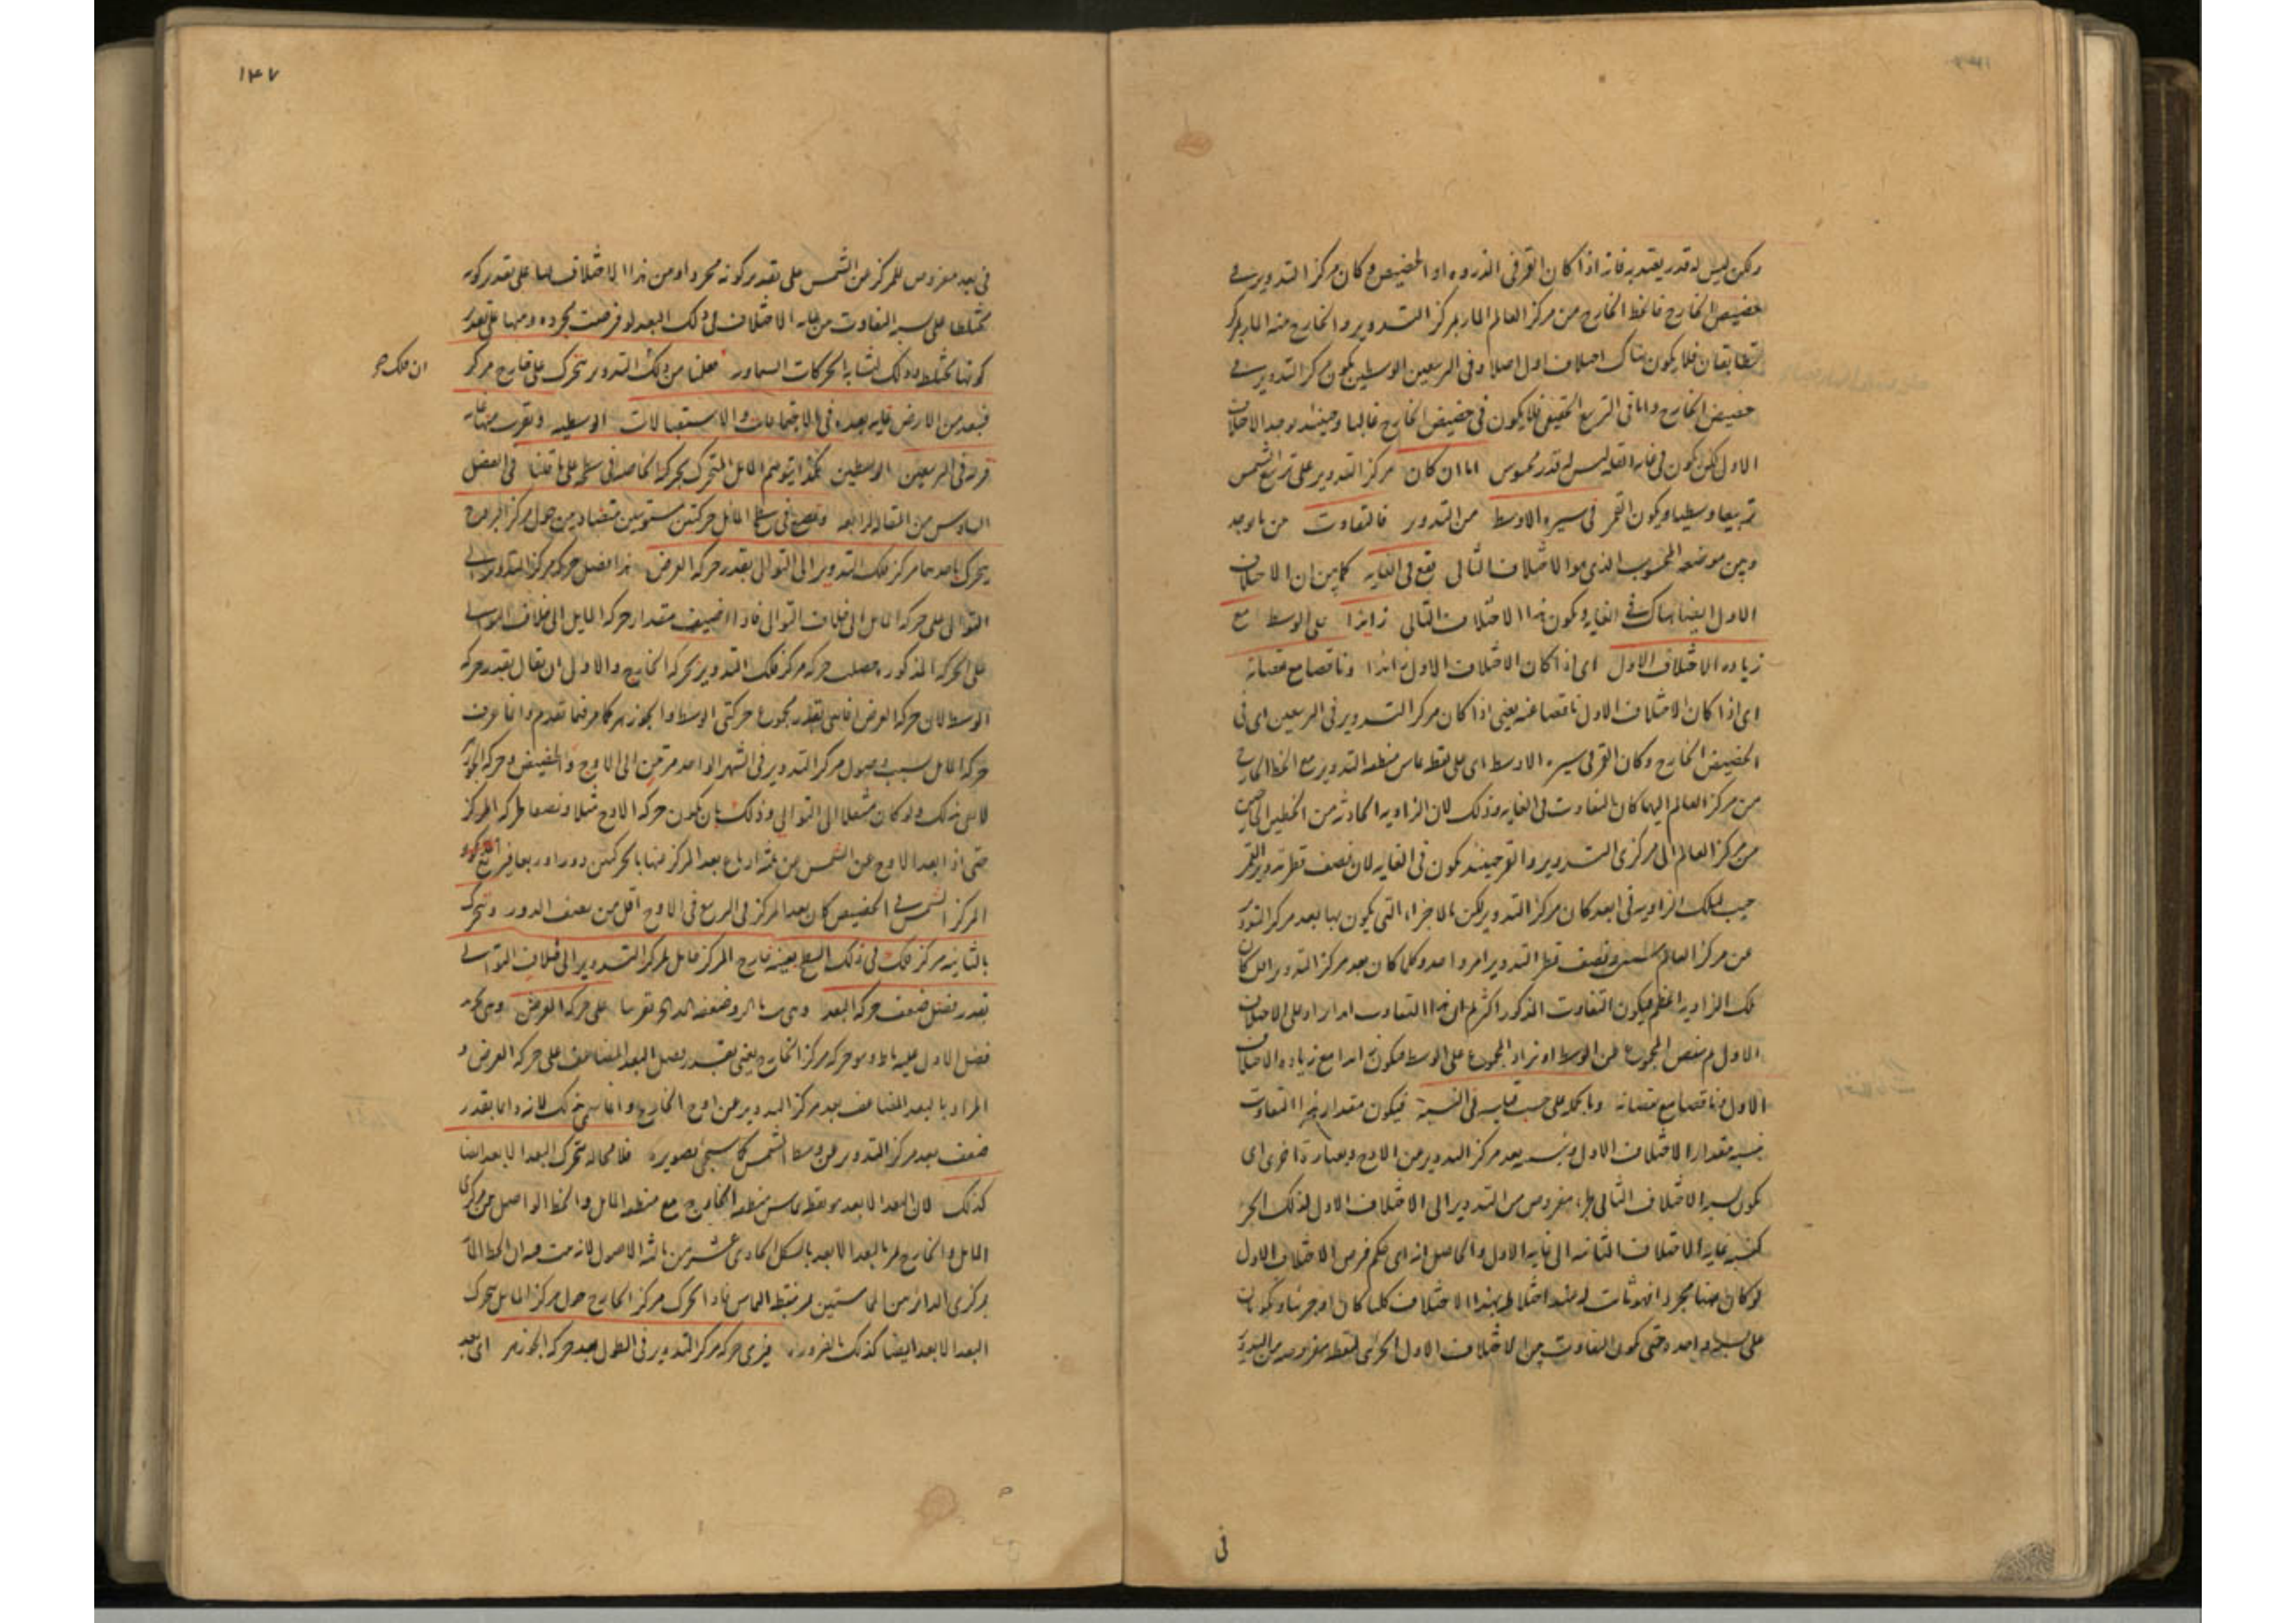 ولكن ليس له قدر يعتد به فانه اذا كان القمر فى الذروه او الحضيض وكان مركز التدوير فى
حضيض الخارج فالخط الخارج من مركز العالم المار بمركز التدوير والخارج منه المار بمركز
متطابقان فلا يكون هناك اختلاف اول اصلا وفى التربيعين الوسطيين يكون مركز التدوير فى
حضيض الخارج واما فى التربيع الحقيقى فلا يكون فى حضيض الخارج غالبا وحينئذ يوجد الاختلاف
الاول لكن يكون فى غايه القله ليس له قدر محسوس اما ان كان مركز التدوير على تربيع الشمس
تربيعا وسطيا ويكون القمر فى مسيره الاوسط من التدوير فالتفاوت من ما وجد
وبين موضعه المحسوب الذى هو الاختلاف الثانى يقع فى الغايه كما بين ان الاختلاف
الاول ايضا هناك فى الغايه ويكون هذا الاختلاف الثانى زايدا على الوسط مع
زياده الاختلاف الاول اى اذا كان الاختلاف الاول زايدا وناقصا مع نقصانه
اى اذا كان الاختلاف الاول ناقصا عنه يعنى اذا كان مركز التدوير فى التربيعين اى فى
الحضيض الخارج وكان القمر فى مسيره الاوسط اى على نقطه تماس منطقه التدوير مع الخط الخارج
من مركز العالم اليها كان التفاوت فى الغايه وذلك لان الزاويه الحادثه من الخطين الخارجين
من مركز العالم الى مركزى التدوير والقمر حينئذ يكون فى الغايه لان نصف قطر تدوير القمر
جيب لتلك الزاويه فى ابعد كان مركز التدوير لكن بالاجزاء التى يكون بها بعد مركز التدوير
عن مركز العالم ستين ونصف قطر التدوير امر واحد وكلما كان بعد مركز التدوير اقل كان
تلك الزاويه اعظم فيكون التفاوت المذكور اكثر ثم ان هذا التفاوت ابدا يزاد على الاختلاف
الاول ثم ينقص المجموع عن الوسط او يزاد المجموع على الوسط فيكون زايدا مع زياده الاختلاف
الاول وناقصا مع نقصانه وبالجمله على حسب قياسه فى النسبة فيكون مقدار هذا التفاوت
بنسبه مقدار الاختلاف الاول وبنسبه بعد مركز التدوير من الاوج وبعبارة اخرى اى
يكون نسبه الاختلاف الثانى لجزء مفروض من التدوير الى الاختلاف الاول لذلك الجزء
كنسبه غايه الاختلاف الثانيه الى غايه الاول والحاصل انه اى حكم فرض الاختلاف الاول
على نسبه واحده حتى يكون التفاوت بين الاختلاف الاول الجزئى لنقطه مفروضه من التدوير
فى
١٤٧
فى بعد مفروض للمركز من الشمس على تقدير كونه مجردا ومن هذا الاختلاف لها على تقدير كونه
مختلطا على نسبه التفاوت من غايه الاختلاف فى ذلك البعد لو فرضت مجرده ومنها على تقدير
كونها مختلطه وذلك لتشابه الحركات السماويه فعلمنا من ذلك التدوير يتحرك على خارج مركز
ان فلك صح
فيبعد من الارض غايه بعده فى الاجتماعات والاستقبالات الوسطيه ويقرب منها غايه
قربه فى التربيعين الوسطيين فلهذا يتوهم المايل المتحرك بحركه الخاصه فى سطحه على ما قلنا فى الفصل
السادس من المقاله الرابعه وتقع فى سطح المايل حركتين مستويتين متضادتين حول مركز البروج
يتحرك باحديهما مركز فلك التدوير الى التوالى بقدر حركه العرض هذا فضل حركه مركز التدوير الى
التوالى على حركه المايل الى خلاف التوالى فاذا اضيف مقدار حركه المايل الى خلاف التوالى
على الحركه المذكوره حصلت حركه مركز فلك التدوير بحركه الخارج والاولى ان يقال بقدر حركه
الوسط لان حركه العرض انما هى بقدر مجموع حركتى الوسط والجوزهر كما مر فيما تقدم وانما عرفت
حركه المايل بسبب وصول مركز التدوير فى الشهر الواحد مرتين الى الاوج والحضيض وحركه الجوزهر
لا يفى بذلك ولو كان منتقلا الى التوالى وذلك بان يكون حركه الاوج مثلا ونصفا لحركه المركز
حتى اذا بعد الاوج عن الشمس من ثلثه ارباع بعد المركز منها بالحركتين دورا وربعا
المركز الشمس فى الحضيض كان بعد المركز فى الربع فى الاوج اقل من نصف الدور ويتحرك
بالثانيه مركز فلك فى ذلك السطح بعينه خارج المركز حامل لمركز التدوير الى خلاف التوالى
بقدر فضل ضعف حركه البعد وهى على حركه العرض وهى
فضل الاول عليه وهو حركه مركز الخارج يعنى بقدر فضل البعد المضاعف على حركه العرض و
المراد بالبعد المضاعف بعد مركز التدوير عن اوج الخارج وانما سمى بذلك لانه دائما بقدر
ضعف بعد مركز التدوير عن وسط الشمس كما سيجئ تصويره فلا محاله يتحرك البعد الابعد ايضا
كذلك لان البعد الابعد هو نقطه تماس منطقه الخارج مع منطقه المايل والخط الواصل بين مركزى
المايل والخارج يمر بالبعد الابعد بالشكل الحادى عشر من ثالثه الاصول لانه يثبت فيه ان الخط المار
بمركزى الدائرتين المتماستين يمر بنقطه التماس فاذا تحرك مركز الخارج حول مركز المايل تحرك
البعد الابعد ايضا كذلك بالضروره فيرى حركه مركز التدوير فى الطول بعد حركه الجوزهر اى بعد